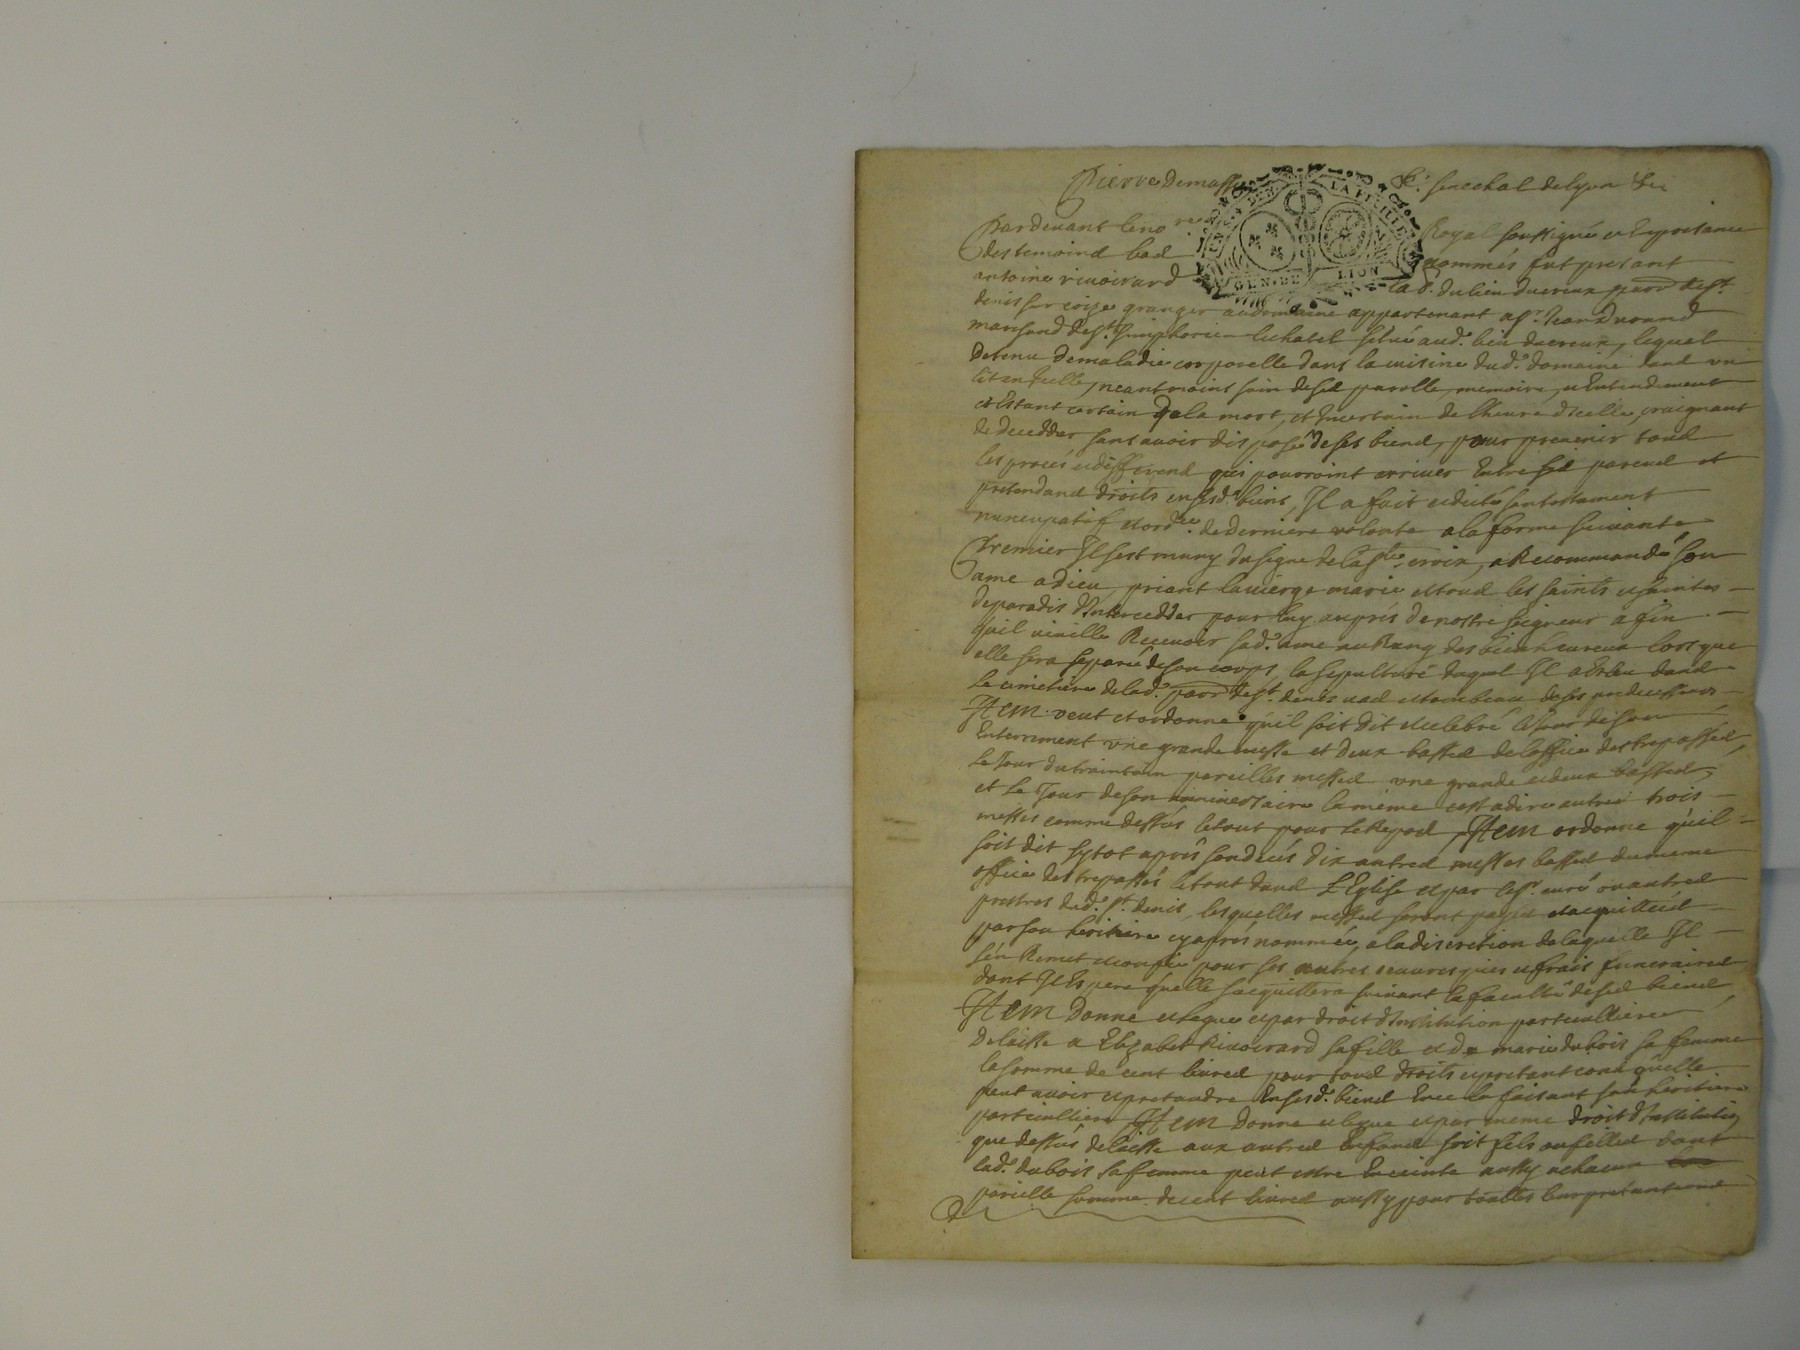 Pierre Demasso &c. senechal de lyon &c
GEN. DE LION
Pardevant le no.re Royal soussigné et En presance
des temoind bad nommés fut presant
antoine rivoirard lad. du lieu du creux parr de st
denis sur coize granger au domaine appartenant a sr. Jean Durand
marchand de st simphorien le chatel situé aud. lieu du creux, lequel
Detenu de maladie corporelle dans la cuisine dud. domaine dand un
lit en Icelle, neantmoins sain de sed parolle, memoire, et Entendement
et Estant certain de la mort, et Incertain de lheure dicelle, craignant
de deceddar sans avoir disposé de ses biend, pour prevenir toud
les procés et differend qui pourroint arriver Entre sed parend et
pretendand droits en sesd. biens, Il a fait et dicté son testament
nuncupatif et ord.ce de derniere volonte a la forme suivante
Premier Il sest muny du signe de la ste. croix, a Recommandé son
ame a dieu, priant la vierge marie et toud les saints et saintes
de paradis d'Intercedder pour luy auprés de nostre seigneur afin
quil vueille Recevoir sad. ame au Rang des bienheureux lorsque
elle sera separée de son corps, la sepulture duquel Il a Esleu dand
le cimetiere de lad. parr de st. denis aud et tombeau de ses predecesseurs
Item veut et ordonne quil soit dit et celebré le Jour de son
Enterrement une grande messe et deux bassed de loffice des trepassed,
le Jour du traintain pareilles messed une grande et deux bassed,
et le Jour de son anniversaire le méme cest a dire autre trois
messes comme dessus le tout pour le Repod, Item ordonne quil
soit dit sytot aprés son decés dix autred messes bassed du meme
office des trepassés le tout dand L'Eglise et par le sr. curé ou autred
prestres dud. st. denis, lesquelles messed seront payés et acquitteed
par son heritiere cy aprés nommée, a la discretion de laquelle Il
s'en Remet et confie pour ses autres oeuvres pies et frais funeraired
dont Il Espere quelle sacquittera suivant la faculté de sed biend
Item Donne et legue et par droit d'Institution particulliere
Delaisse a Elizabet Rivoirard sa fille et de marie dubois sa femme
la somme de cent livred pour toud droits et pretantiond quelle
peut avoir et pretandre En sesd. biend Ence la faisant son heritiere
particulliere Item Donne et legue et par meme droit d'Institution
que dessus delaisse aux autred Enfand soit fils ou filled dont
lad. dubois sa femme peut estre Enceinte aussy a chacun
pareille somme de cent livred aussy pour toutes leur pretantiond